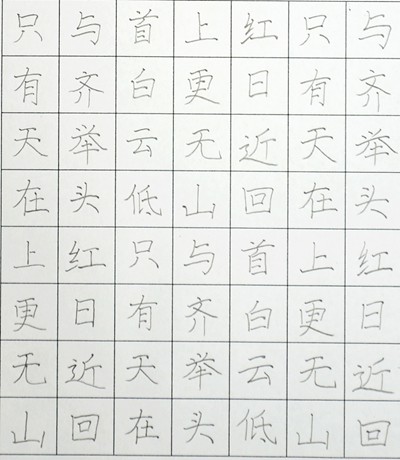 只与首上红只与
有齐白更日有齐
天举云无近天举
在头低山回在头
上红只与首上红
更日有齐白更日
无近天举云无近
山回在头低山回